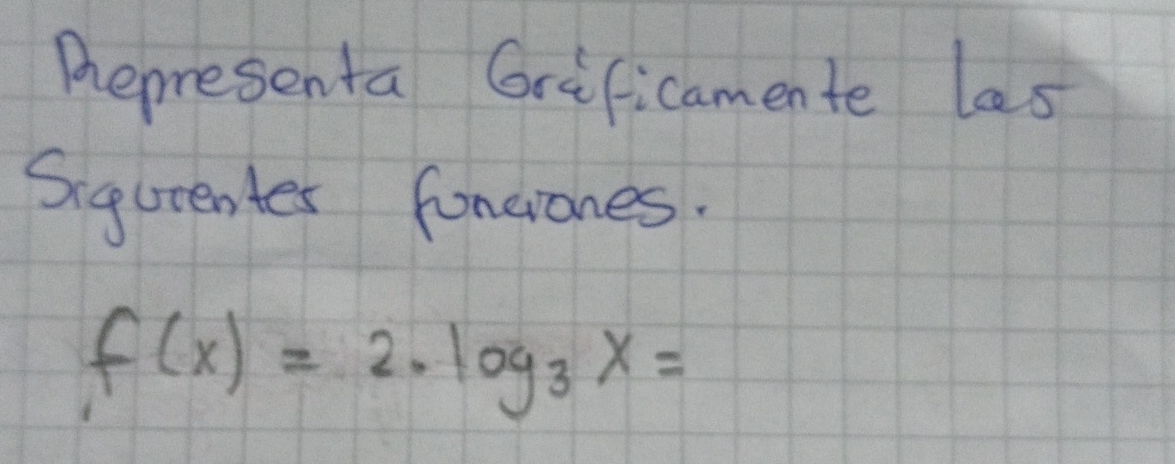 Representa Gráficamente las
Siguientes funciones.
f(x) = 2 . log₃ x =